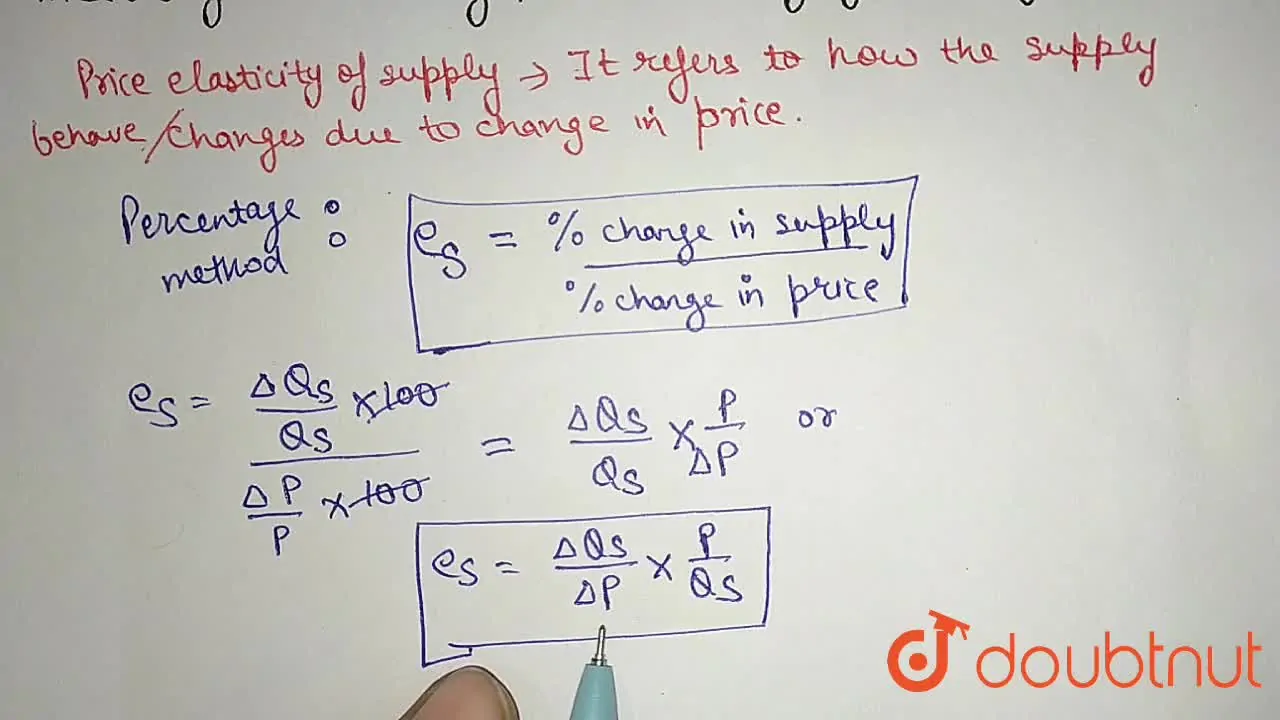 Price elasticity of supply → It refers to how the supply
behave/changes due to change in price.
Percentage :
method :
eS = % change in supply
% change in price
eS = ΔQS/QS × 100 / ΔP/P × 100 = ΔQS/QS × P/ΔP or
eS = ΔQS/ΔP × P/QS
doubtnut